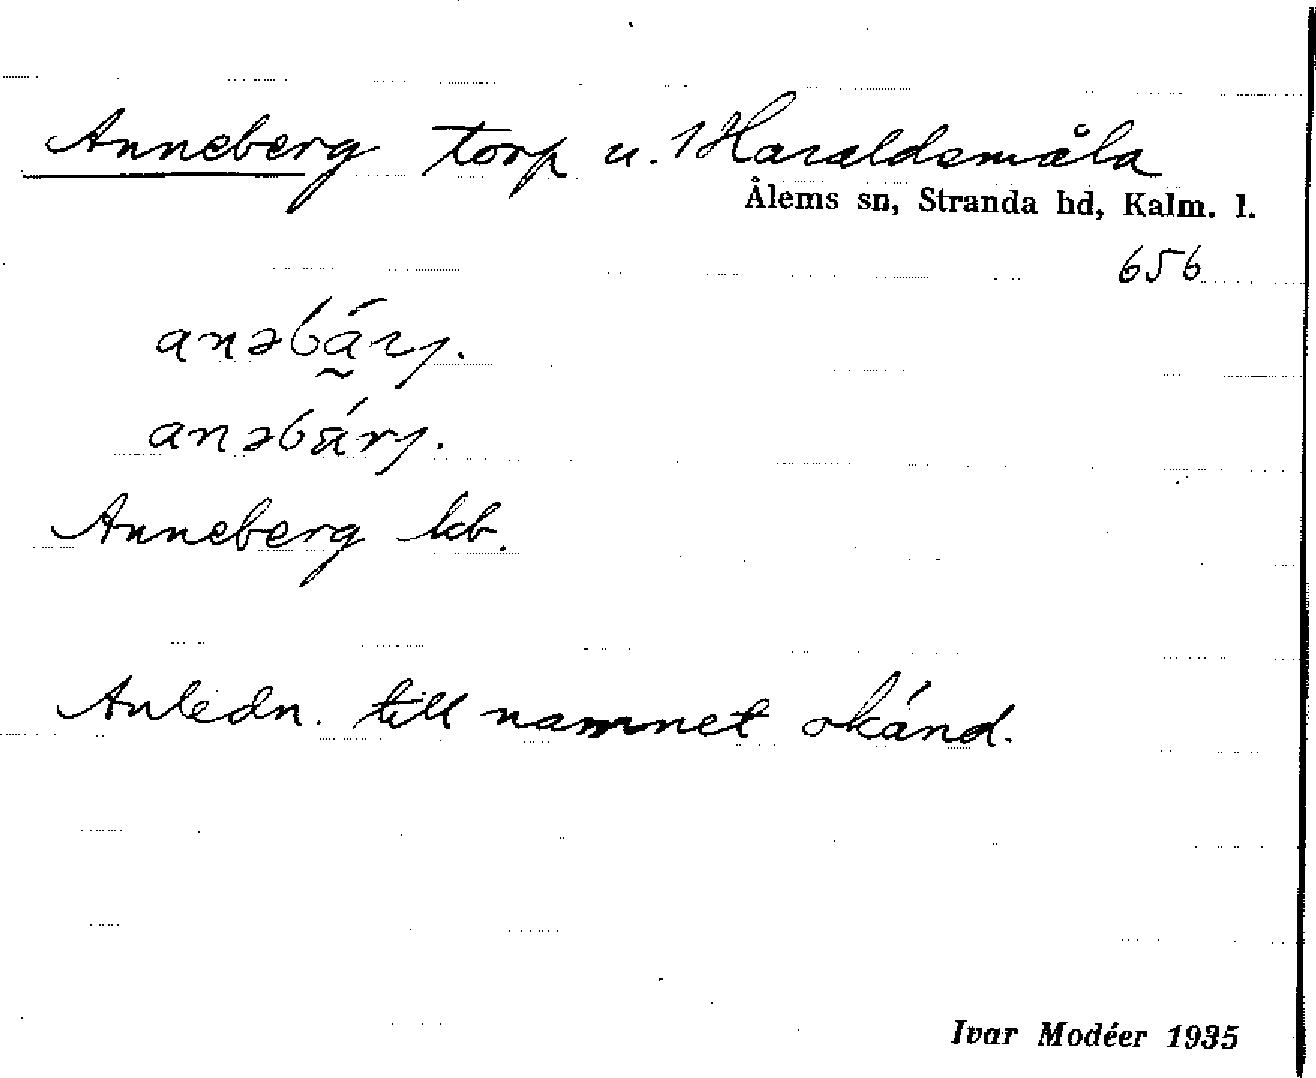 Anneberg torp u. Haraldsmåla
Ålems sn, Stranda hd, Kalm. l.
656
anəbá̰rj.
anəbárj.
Anneberg kb.
Anledn. till namnet okänd.
Ivar Modéer 1935